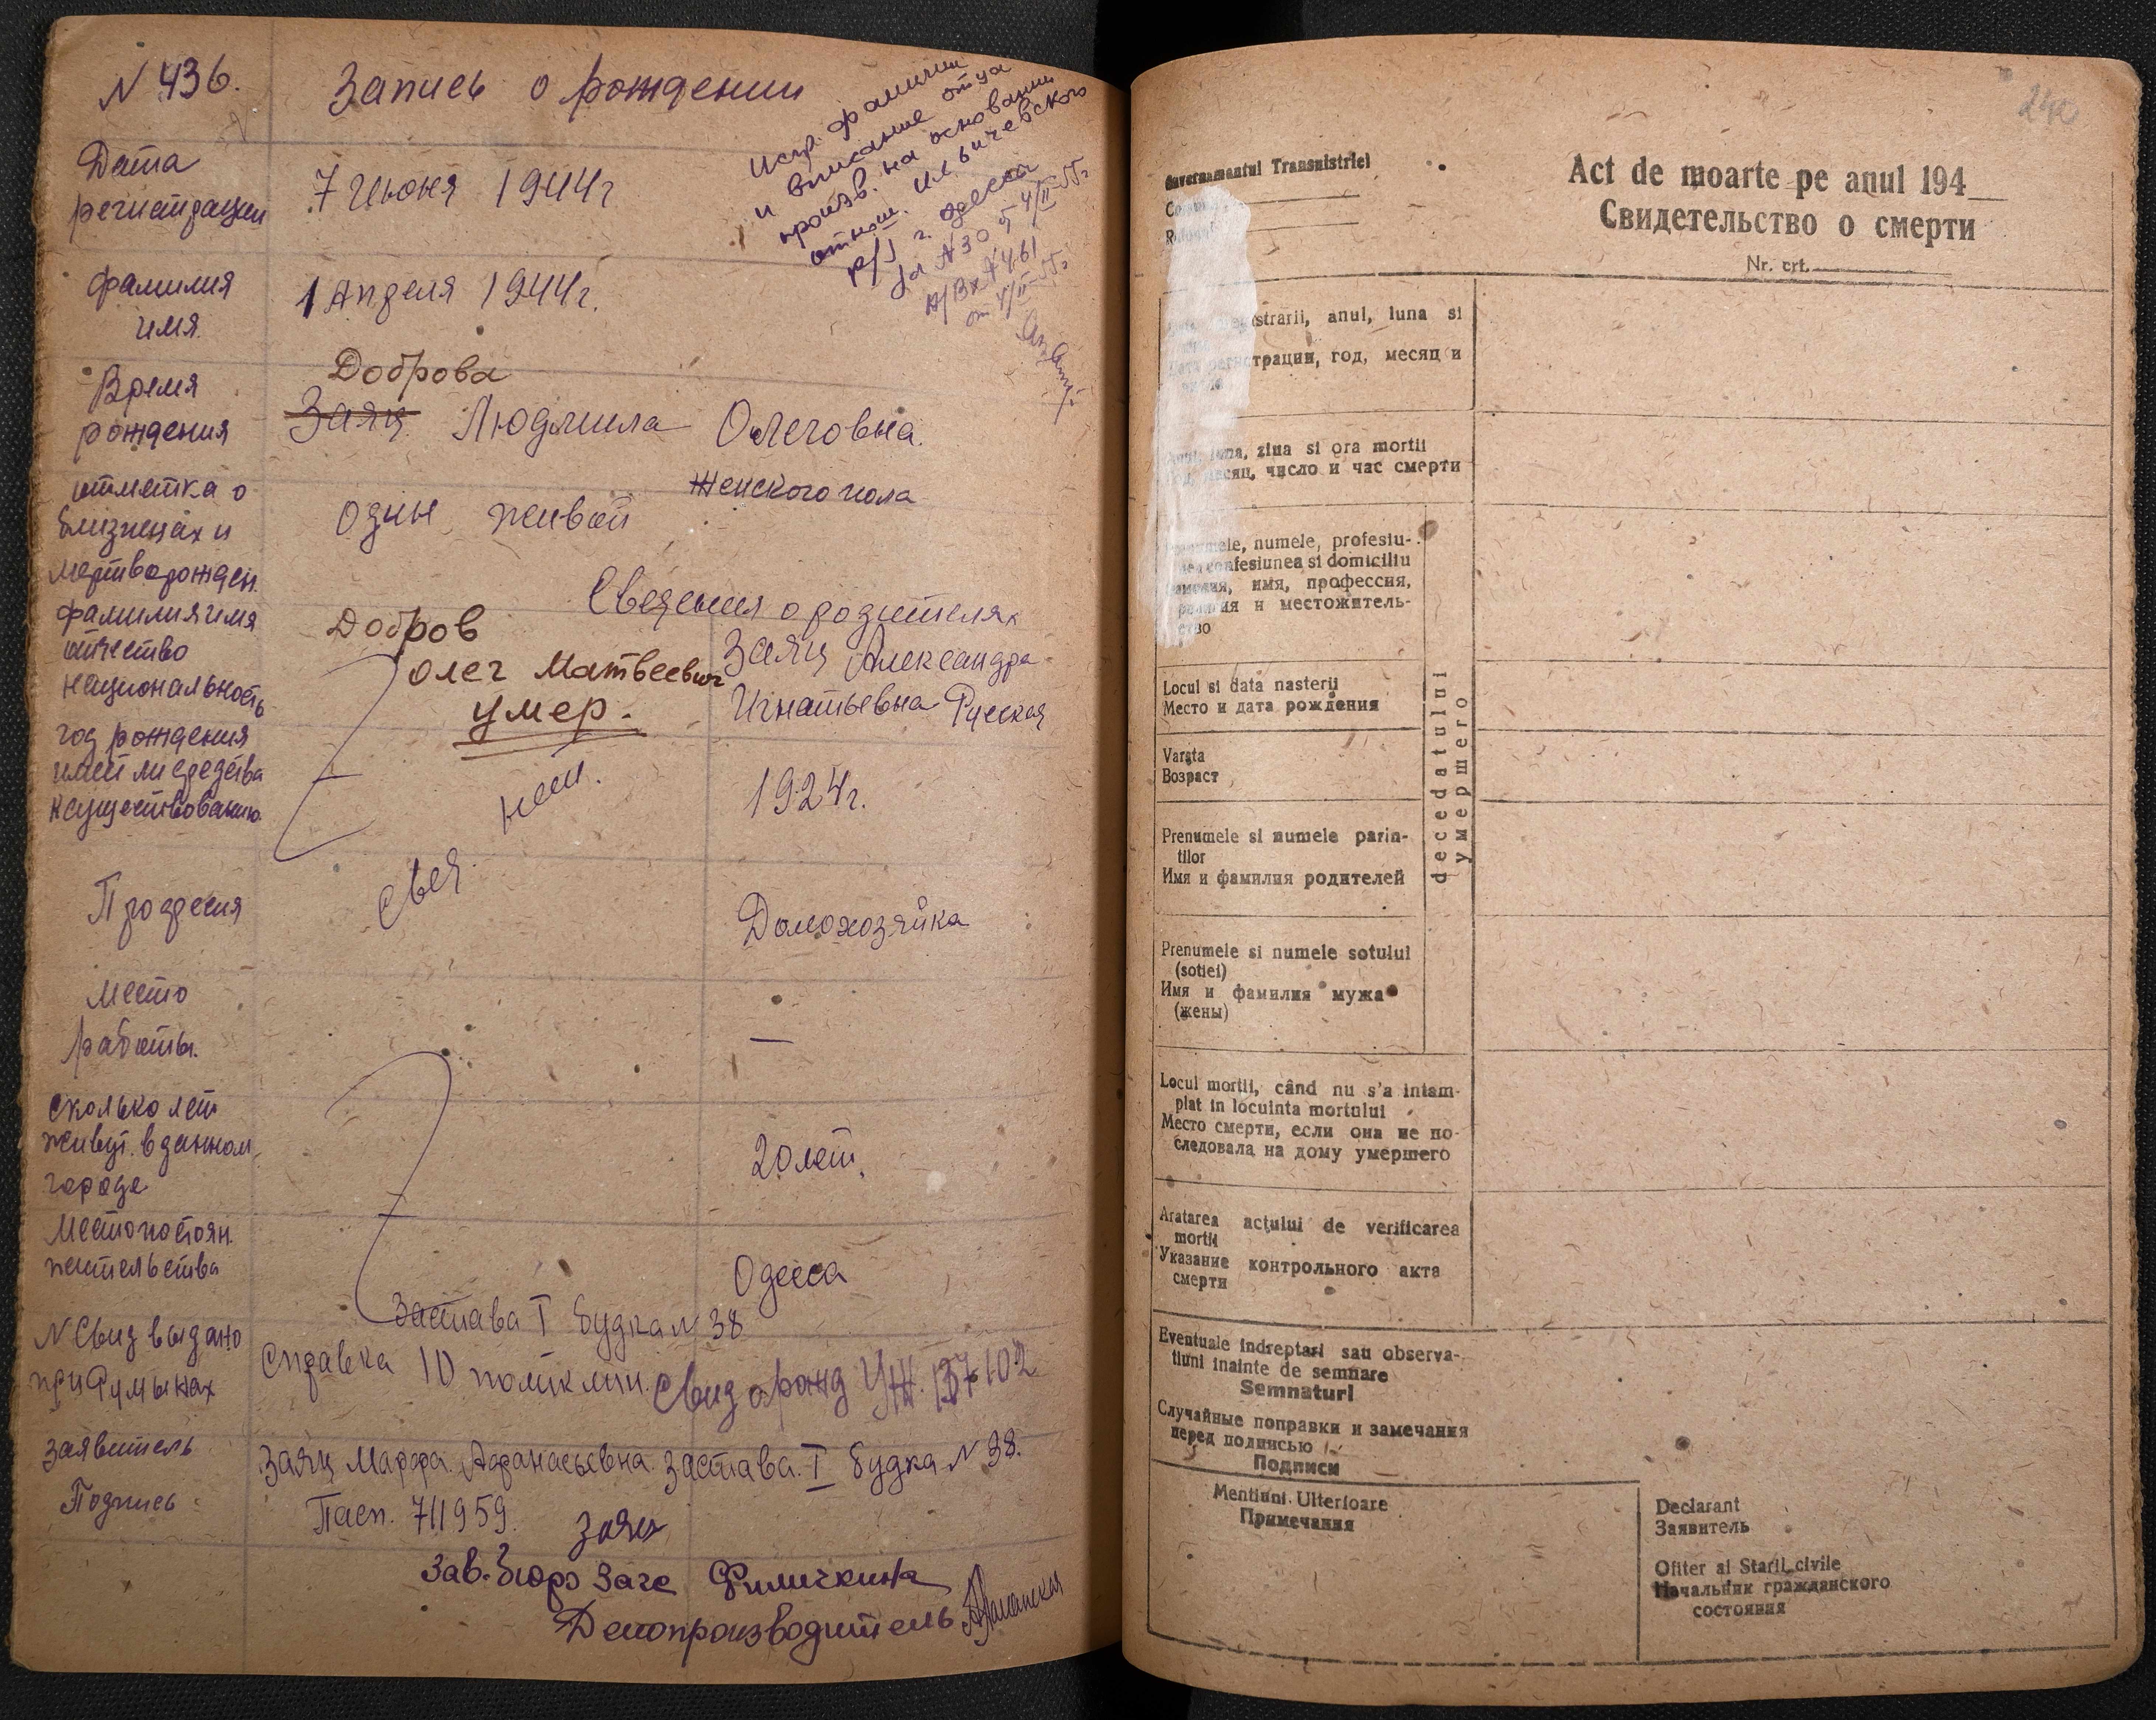 N 436. Запись о рождении
Испр. фамилии
и вписание отца
произв. на основании
отнош. Ильичевского
р/з г. Одесса
за N 305 4/II-55г
В/Вх N 461
от 4/II-55г.
Дата
регистрации
7 Июня 1944г
фамилия
имя.
1 Апреля 1944г.
Время
рождения
Доброва
Заяц Людмила Олеговна.
Женского пола
отметка о
близнецах и
мертворожден.
Один живой
Сведения о родителях
фамилия имя
отчество
национальность
год рождения
имет ли средства
к существованию.
Добров
Олег Матвеевич
умер.
Заяц Александра
Игнатьевна Русская
1924г.
свед. нет.
Професия
Домохозяйка
Место
работы.
—
сколько лет
живут. в данном
городе
20 лет.
Место постоян.
жительства
Одесса
Застава I будка N 38
N Свид выдано
при Румынах
Справка 10 поликлин. Свид о рожд УЖ. 137102
Заявитель
Заяц Марфа Афанасьевна. Застава. I будка N 38.
Подпись
Пасп. 711959.
Заяц
Зав. Бюро Загс Филичкина
Делопроизводитель
240
Guvernamantul Transnistriei
Act de moarte pe anul 194__
Свидетельство о смерти
Nr. crt.
strarii, anul, luna si
регистрации, год, месяц и
число
luna, ziua si ora mortii
месяц, число и час смерти
numele, profesiu-
confesiunea si domiciliu
имя, профессия,
и местожитель-
ство
Locul si data nasterii
Место и дата рождения
Varsta
Возраст
Prenumele si numele parin-
tilor
Имя и фамилия родителей
decedatului
умершего
Prenumele si numele sotului
(sotiei)
Имя и фамилия мужа
(жены)
Locul mortii, când nu s'a intam-
plat in locuinta mortului
Место смерти, если она не по-
следовала на дому умершего
Aratarea actului de verificarea
mortii
Указание контрольного акта
смерти
Eventuale indreptari sau observa-
tiuni inainte de semnare
Semnaturi
Случайные поправки и замечания
перед подписью
Подписи
Mentiuni Ulterioare
Примечания
Declarant
Заявитель
Ofiter al Starii civile
Начальник гражданского
состояния